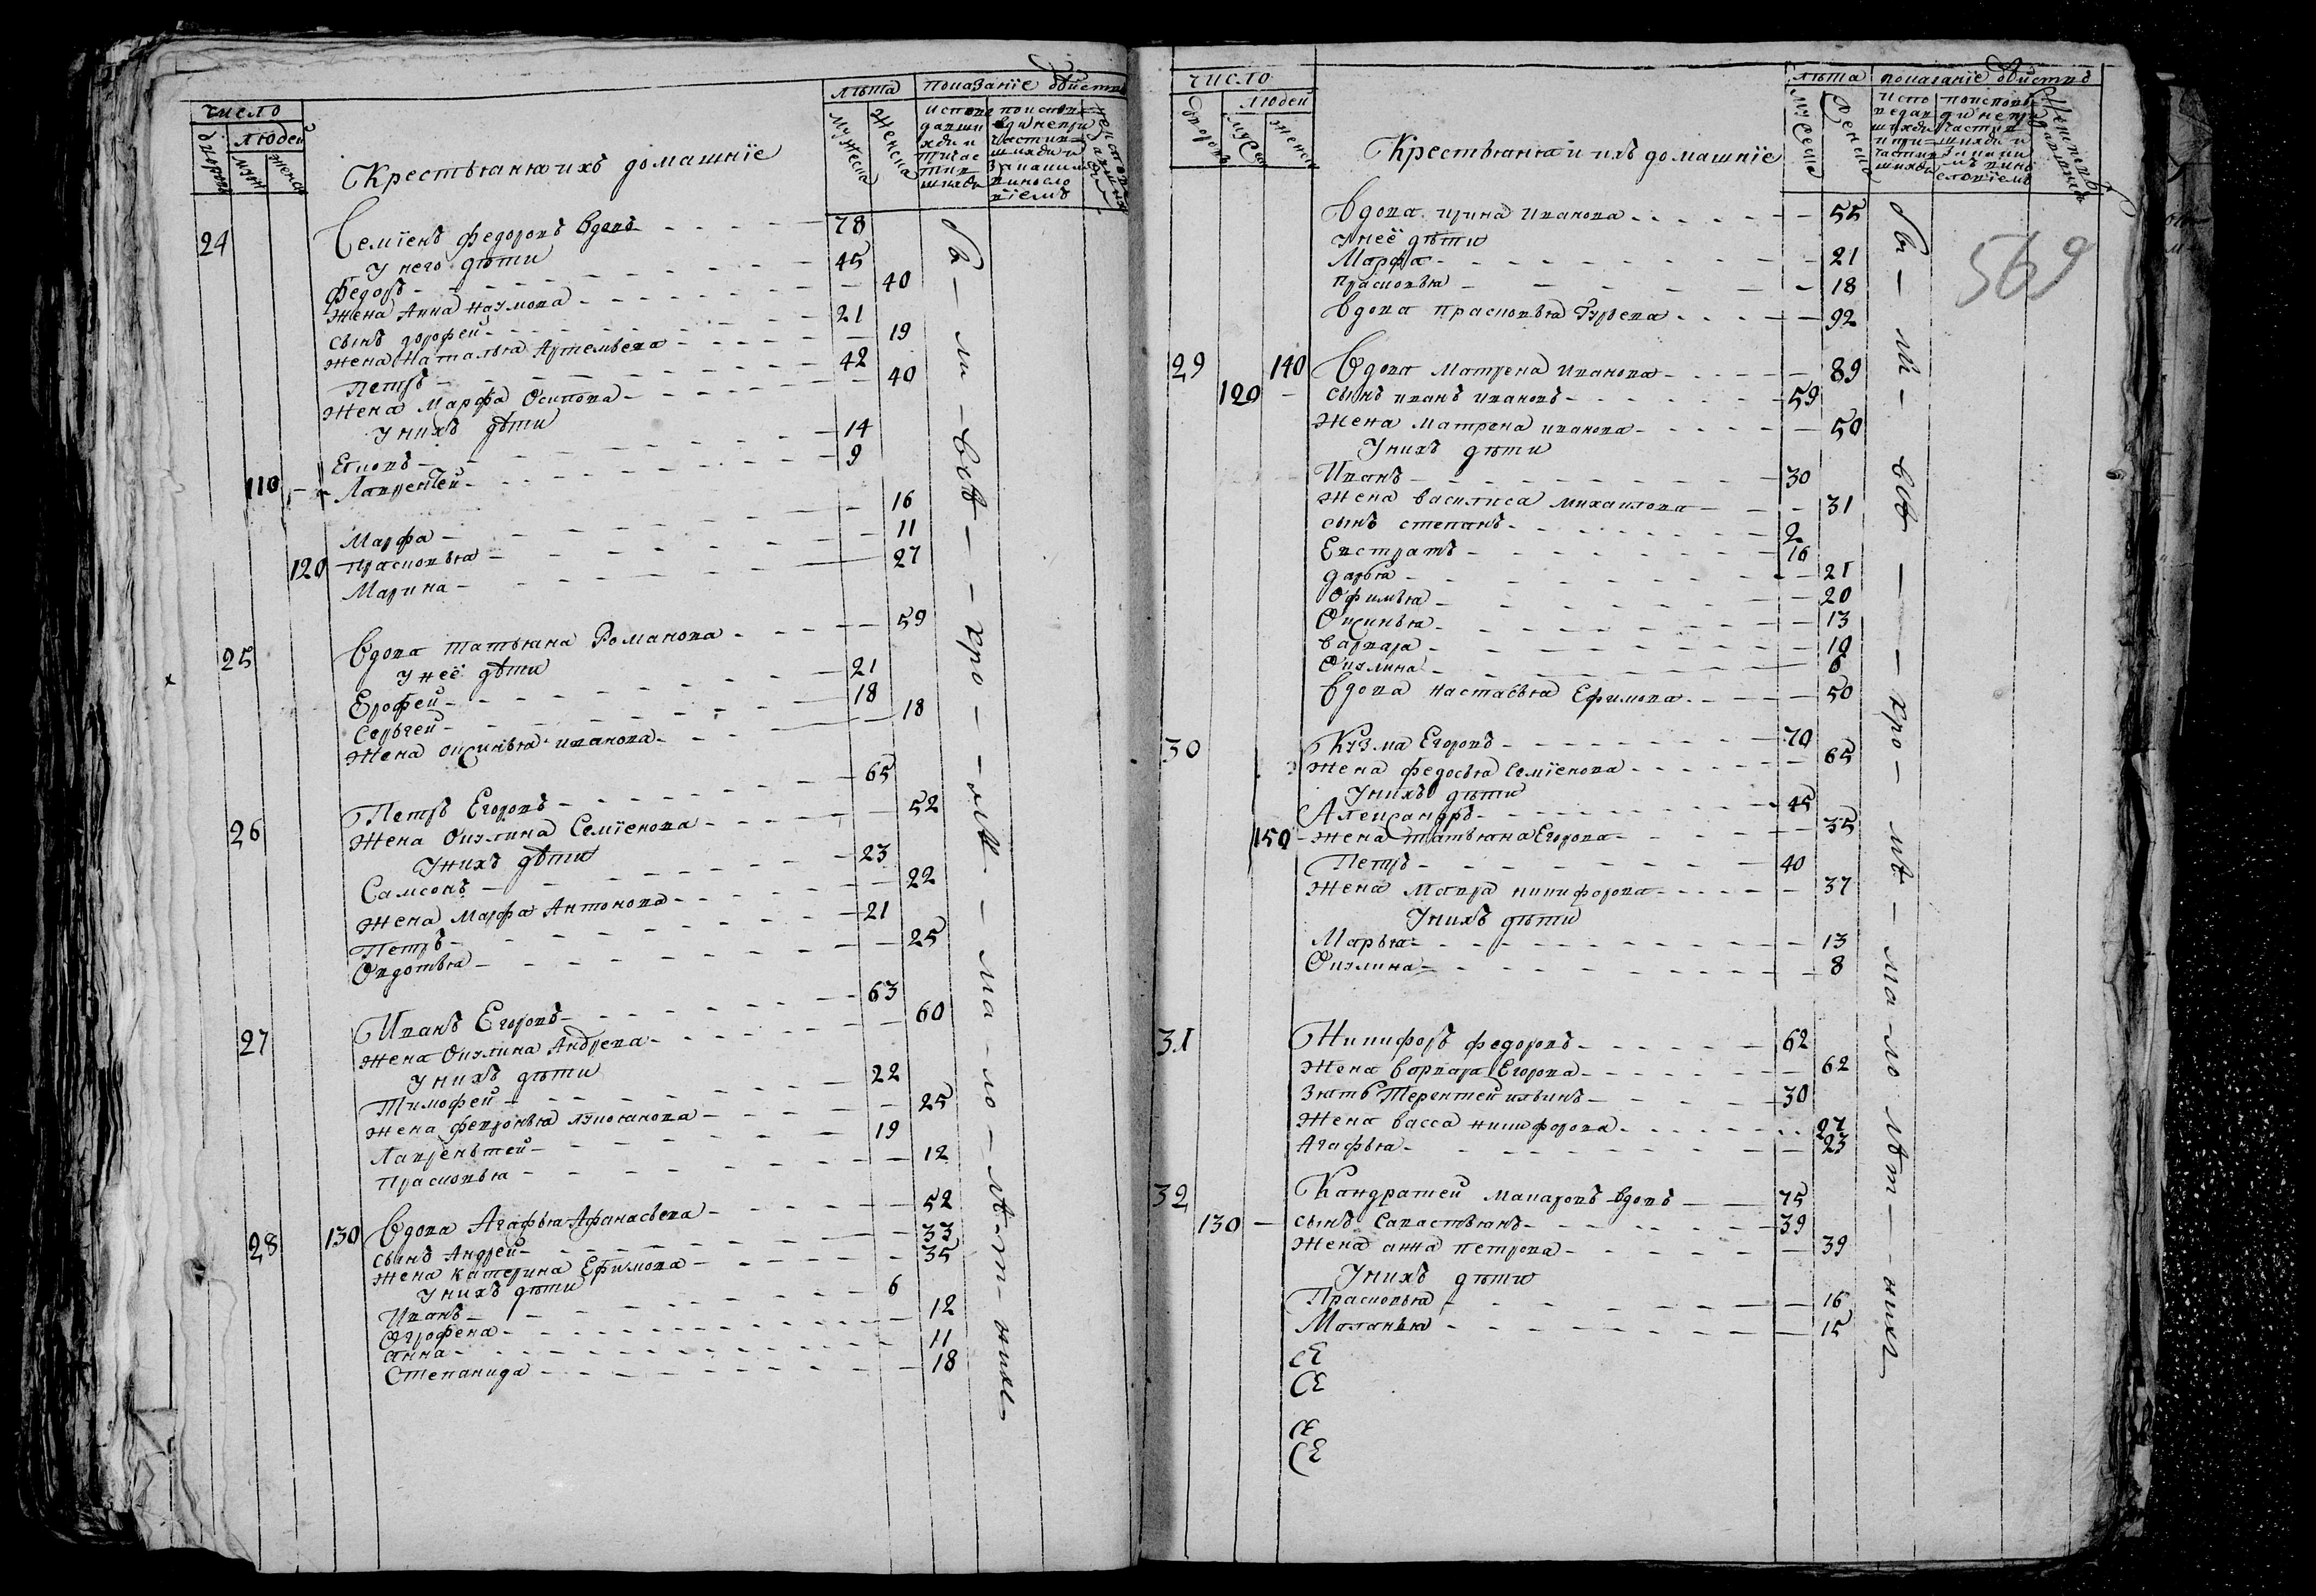 число
лѣта показанїе дѣйствъ
дворовъ людей
мужеска женска
муж женск
Крестьяня и ихъ домашнїе
24 Семїенъ Федоровъ вдовъ 78
У него дѣти
Федоръ 45
жена Анна Наумова 40
сынъ дорофей 21
жена Наталья Артемьева 19
Петръ 42
жена Марфа Осипова 40
У нихъ дѣти
Егиовъ 14
110 Лаврентей 9
Марфа 16
120 Прасковья 11
Марина 27
25 Вдова татьяна Романова 59
У неё дѣти
Ерофей 21
Сергей 18
жена оксинья иванова 18
26 Петръ Егоровъ 65
жена Окулина Семїенова 52
У нихъ дѣти
Самсонъ 23
жена Марфа Антонова 22
Петръ 21
Овдотья 25
27 Иванъ Егоровъ 63
жена Окулина Андреева 60
У нихъ дѣти
Тимофей 22
жена февронья лукоянова 25
Лаврентей 19
Прасковья 12
28 130 Вдова Агафья Афанасьева 52
сынъ Андрей 33
жена катерина Ефимова 35
У нихъ дѣти
Иванъ 6
Огрофена 12
анна 11
Степанида 18
число
лѣта показанїе дѣйствъ
дворовъ людей
мужеска женска
Крестьяня и ихъ домашнїе
569
Вдова ирина иванова 55
У неё дѣти
Марфа 21
прасковья 18
Вдова прасковья Гурьева 92
29 140 Вдова матрена иванова 89
120 сынъ иванъ ивановъ 59
жена матрена иванова 50
У нихъ дѣти
Иванъ 30
жена василиса михаилова 31
сынъ степанъ 2
Евстратъ 16
дарья 21
Офимья 20
Оксинья 13
варвара 10
Окулина 6
Вдова настасья Ефимова 50
30 Кузма Егоровъ 70
жена федосья семїенова 65
У нихъ дѣти
Александръ 45
150 жена татьяна Егорова 35
Петръ 40
жена Мавра никифорова 37
У нихъ дѣти
Марья 13
Окулина 8
31 Никифоръ федоровъ 62
жена варвара Егорова 62
Зять Терентей ильинъ 30
жена васса никифорова 27
Агафья 23
32 Кандратей макаровъ вдовъ 75
130 сынъ Савастьянъ 39
жена анна петрова 39
У нихъ дѣти
Прасковья 16
Маланья 15